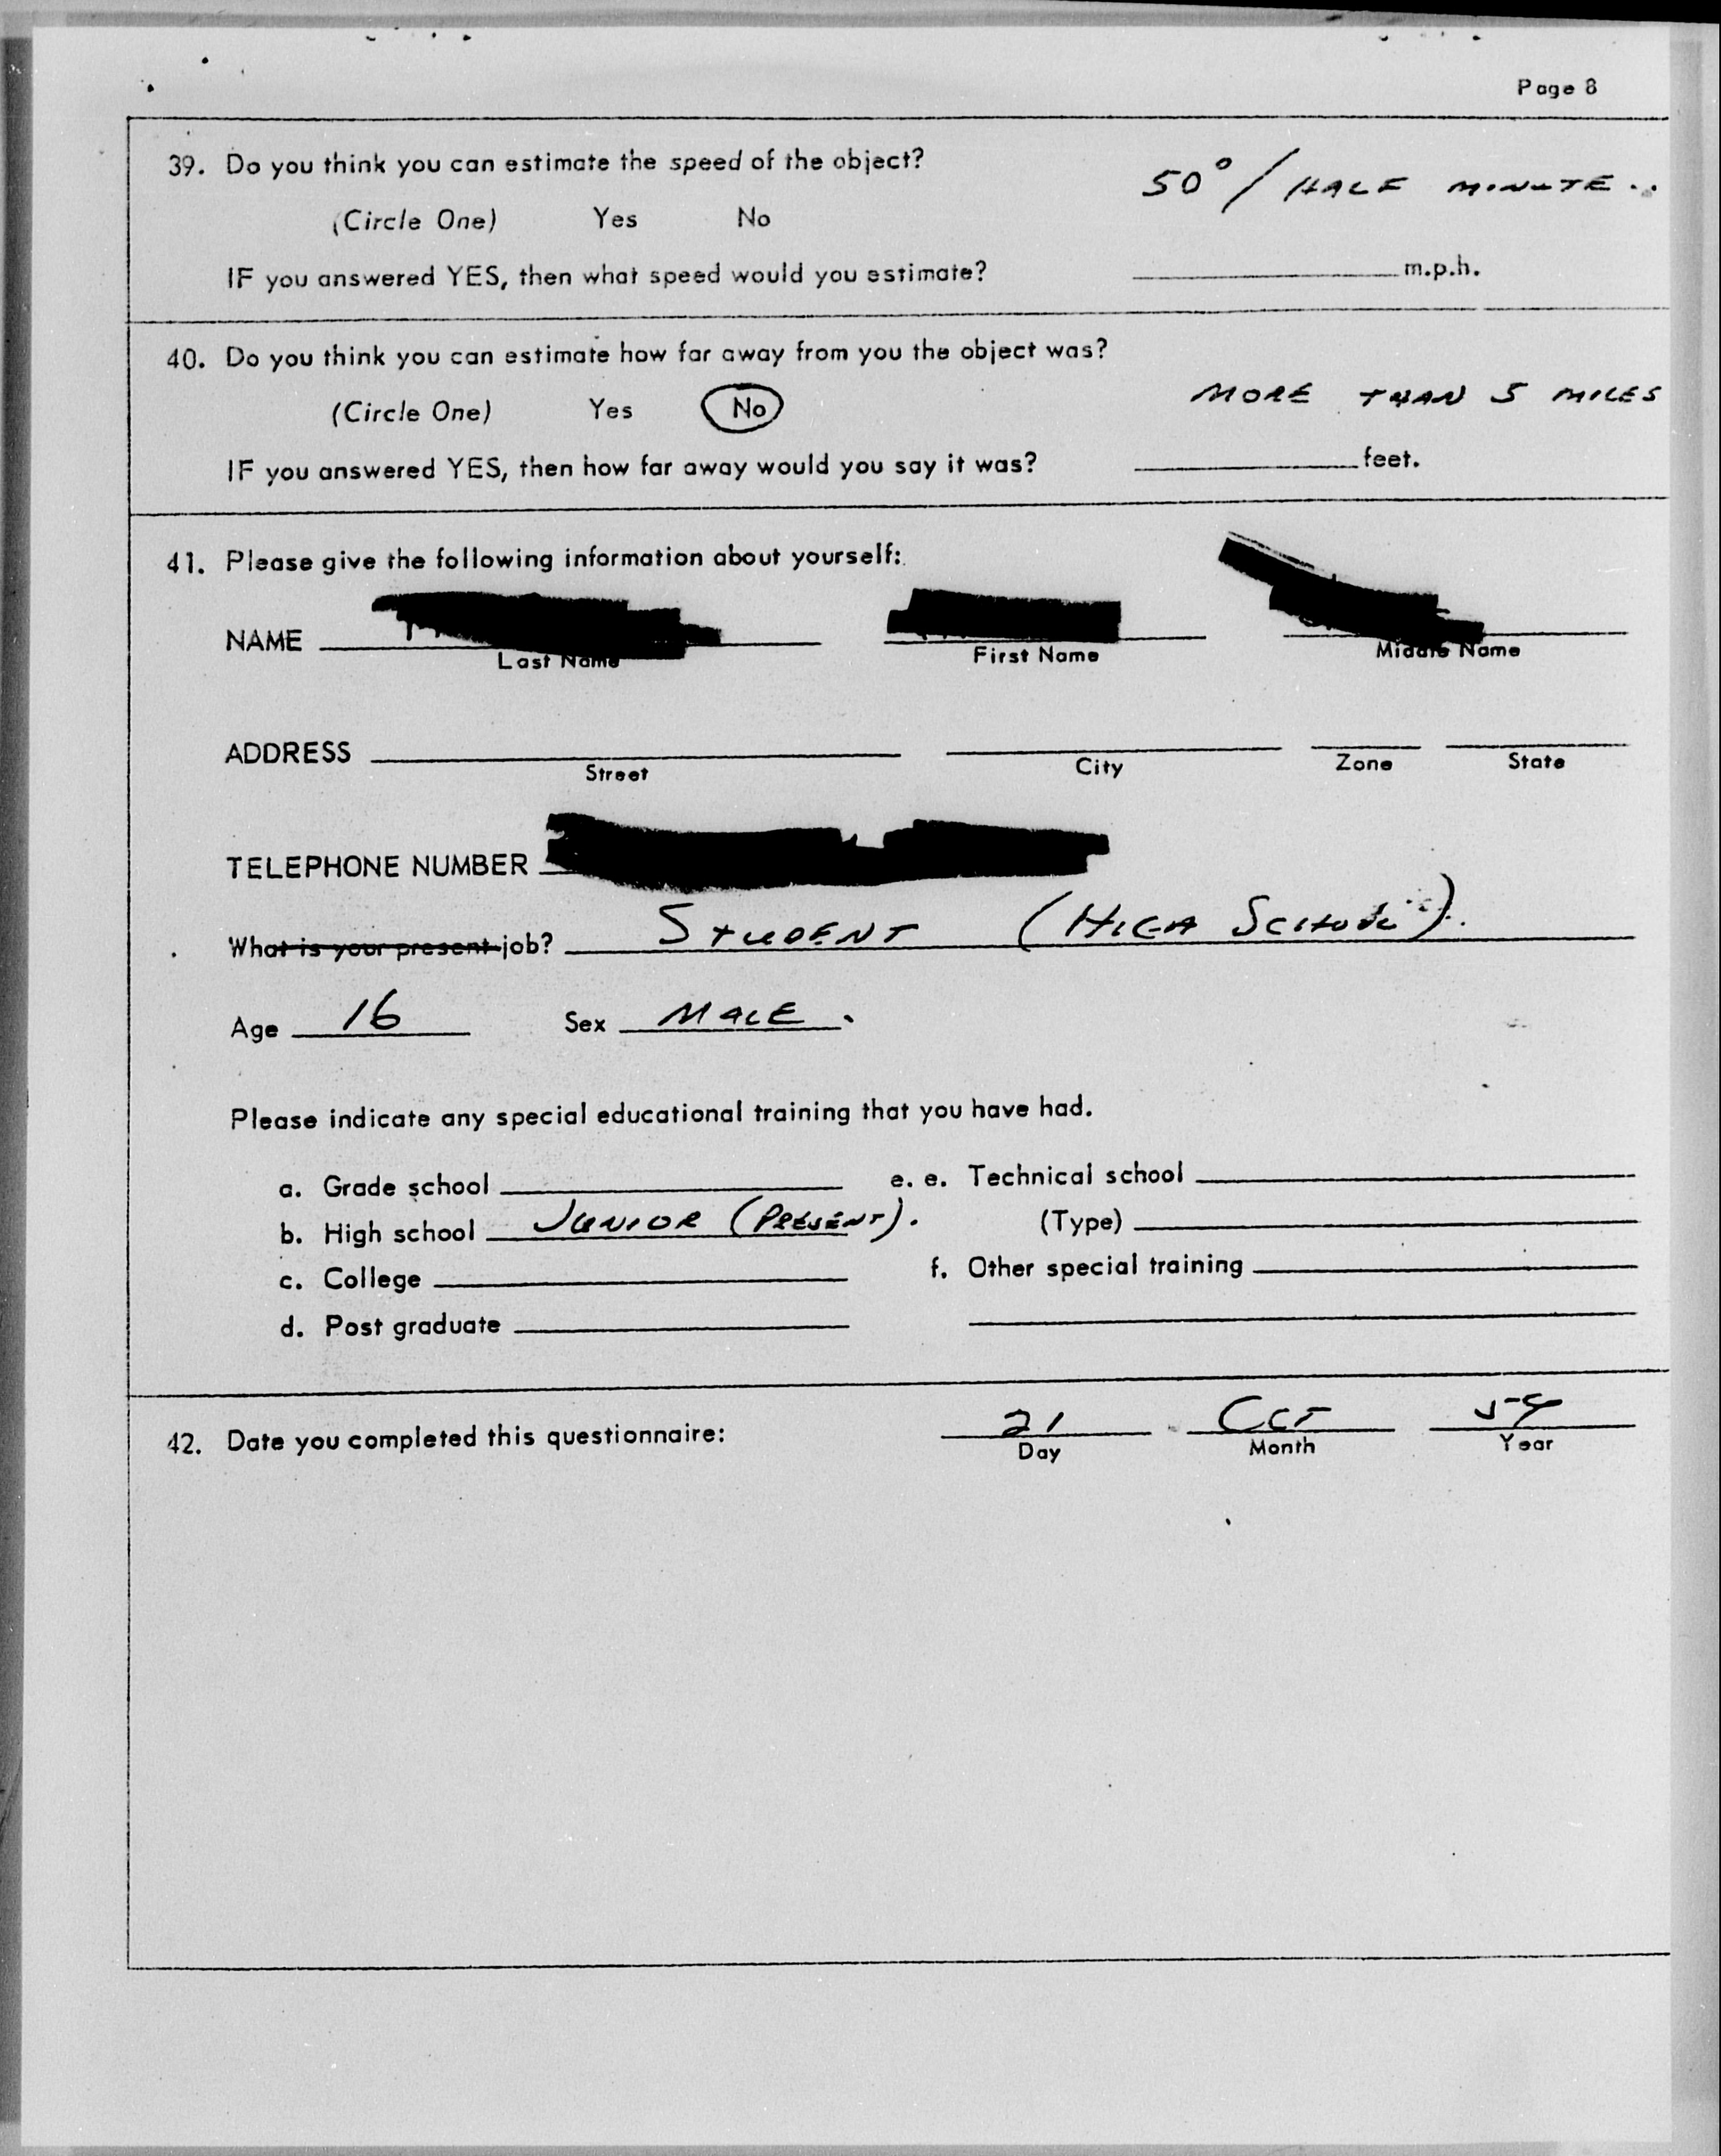 Page 8
39. Do you think you can estimate the speed of the object?
50° / HALF MINUTE..
(Circle One) Yes No
IF you answered YES, then what speed would you estimate? m.p.h.
40. Do you think you can estimate how far away from you the object was?
MORE THAN 5 MILES
(Circle One) Yes No
IF you answered YES, then how far away would you say it was? feet.
41. Please give the following information about yourself:
NAME
Last Name First Name Middle Name
ADDRESS
Street City Zone State
TELEPHONE NUMBER
What is your present job? STUDENT (HIGH SCHOOL).
Age 16 Sex MALE.
Please indicate any special educational training that you have had.
a. Grade school e. e. Technical school
b. High school JUNIOR (PRESENT). (Type)
c. College f. Other special training
d. Post graduate
42. Date you completed this questionnaire: 21 OCT
Day Month Year